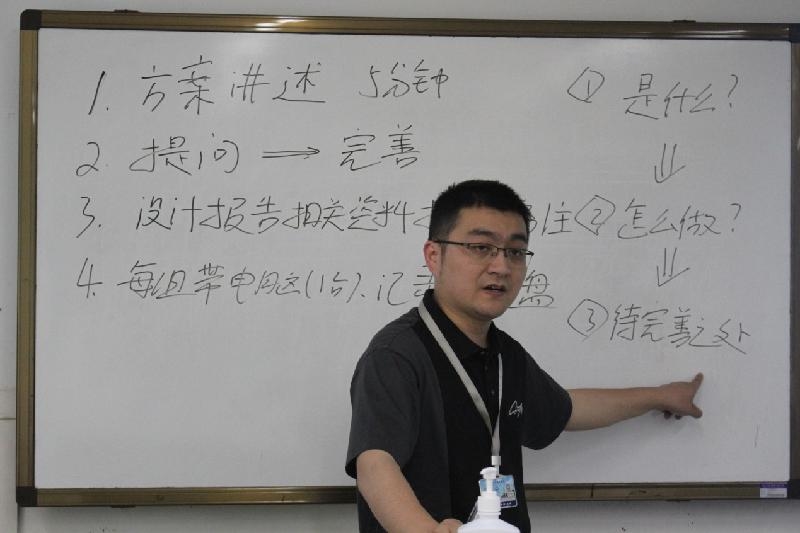 1. 方案讲述 5分钟
2. 提问 → 完善
3. 设计报告相关资料
注
4. 每组带电脑(1台)、记
盘
① 是什么?
⇓
② 怎么做?
⇓
③ 待完善之处